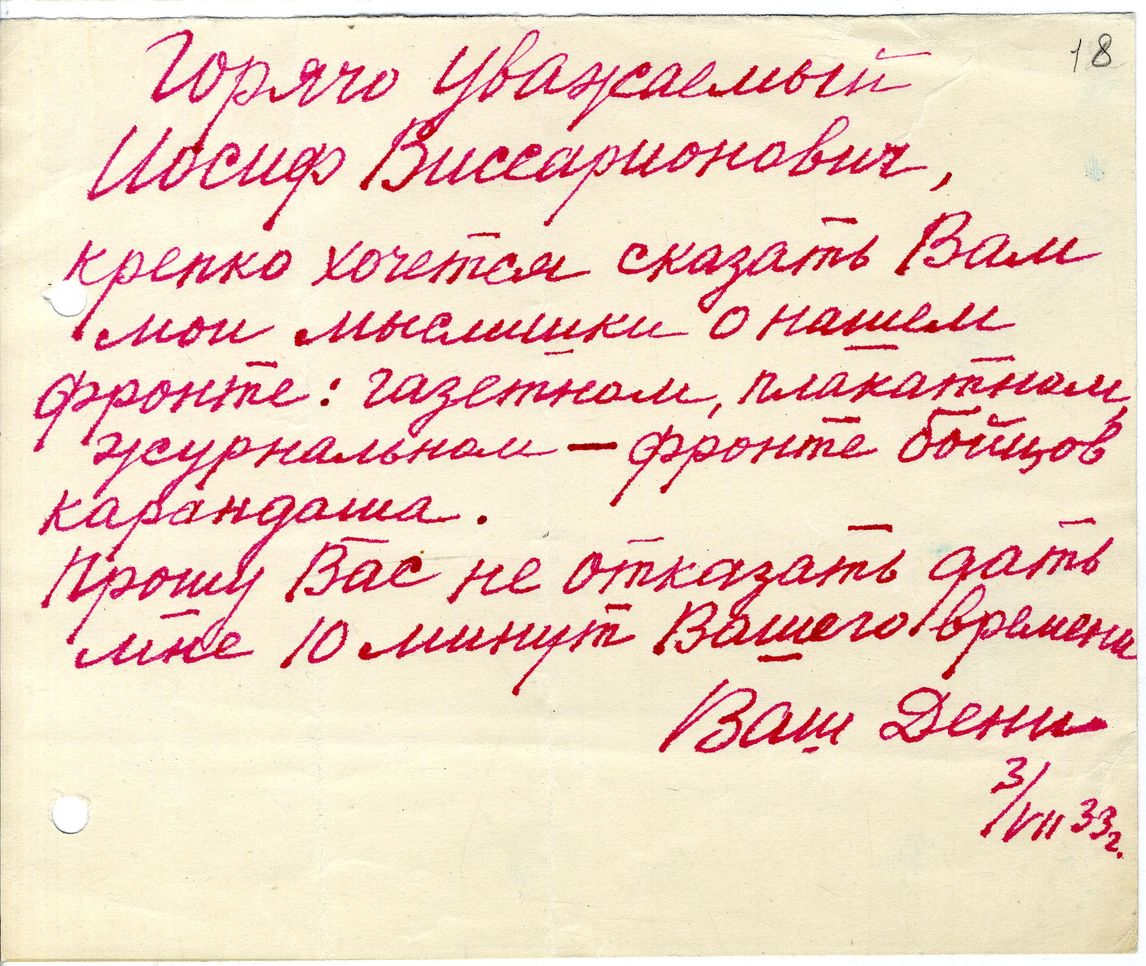 18
Горячо уважаемый
Иосиф Виссарионович,
крепко хочется сказать Вам
мои мыслишки о нашем
фронте: газетном, плакатном,
журнальном — фронте бойцов
карандаша.
Прошу Вас не отказать дать
мне 10 минут Вашего времени
Ваш Дени
3/VII 33г.